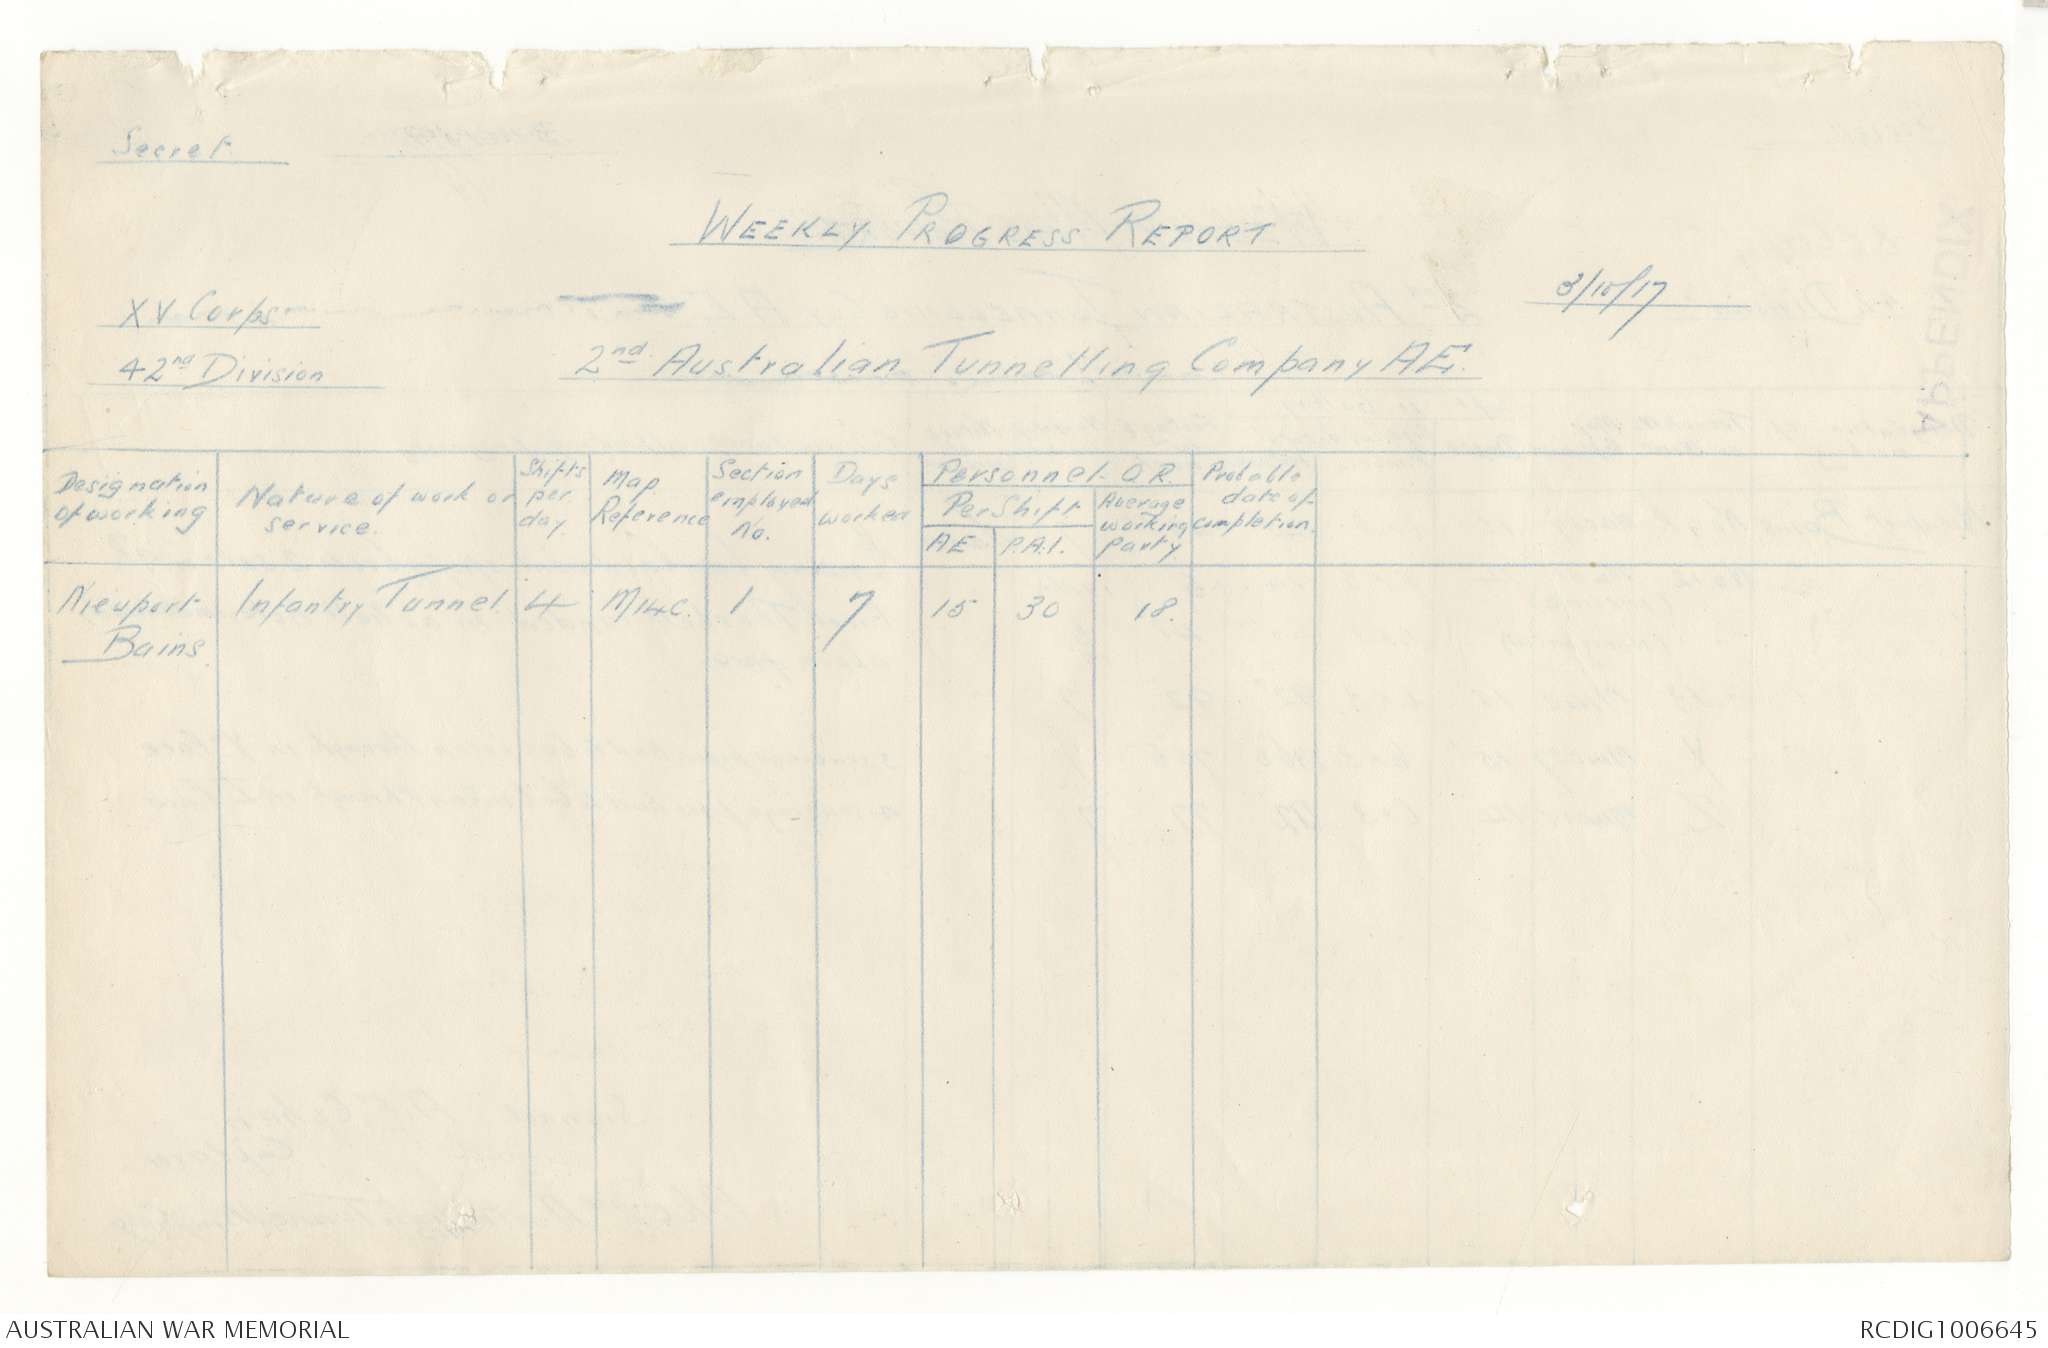 Secret
WEEKLY PROGRESS REPORT
3/10/17
XV Corps
42nd Division
2nd Australian Tunnelling Company AE.
Designation of working
Nature of work or service.
Shifts per day.
Map Reference
Section employed No.
Days worked
Personnel O.R.
Per Shift
AE
P.A.I.
Average working party
Probable date of completion.
Nieuport Bains.
Infantry Tunnel.
4
M14c.
1
7
15
30
18.
AUSTRALIAN WAR MEMORIAL
RCDIG1006645